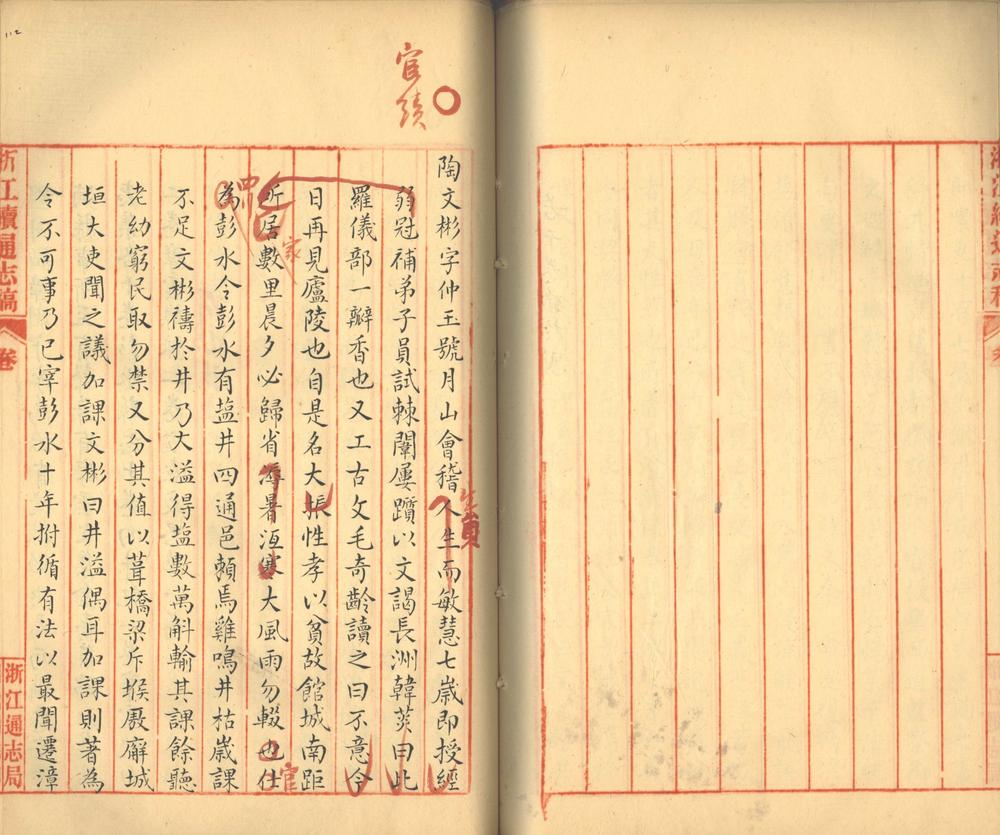 112
宦績
陶文彬字仲玉號月山會稽人生而敏慧七歲即授經
弱冠補弟子員試棘闈屢躓以文謁長洲韓菼曰此
羅儀部一瓣香也又工古文毛奇齡讀之曰不意今
日再見廬陵也自是名大振性孝以貧故館城南距
所居數里晨夕必歸省溽暑沍寒大風雨勿輟也仕
家
官
為彭水令彭水有塩井四通邑賴焉雞鳴井枯歲課
不足文彬禱於井乃大溢得塩數萬斛輸其課餘聽
老幼窮民取勿禁又分其值以葺橋梁斥堠廏廨城
垣大吏聞之議加課文彬曰井溢偶耳加課則著為
令不可事乃已宰彭水十年拊循有法以最聞遷漳
浙江續通志稿
卷
浙江通志局